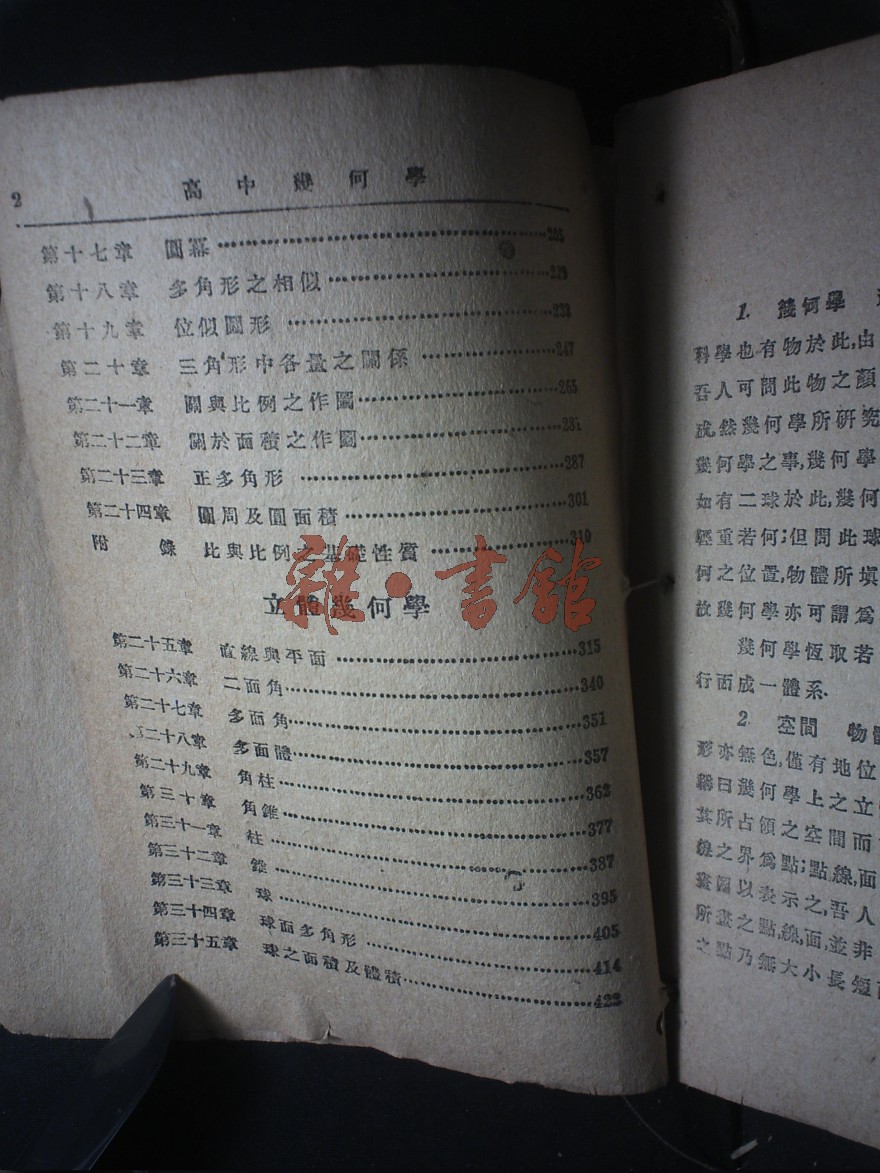 2 高中幾何學
第十七章 圓冪
第十八章 多角形之相似 229
第十九章 位似圖形 238
第二十章 三角形中各量之關係 247
第二十一章 關與比例之作圖 265
第二十二章 關於面積之作圖 281
第二十三章 正多角形 287
第二十四章 圓周及圓面積 301
附錄 比與比例之基礎性質 310
雜·書館
立體幾何學
第二十五章 直線與平面 315
第二十六章 二面角 340
第二十七章 多面角 351
第二十八章 多面體 357
第二十九章 角柱 362
第三十章 角錐 377
第三十一章 柱 387
第三十二章 錐 395
第三十三章 球 405
第三十四章 球面多角形 414
第三十五章 球之面積及體積 422
1. 幾何學
科學也有物於此,由
吾人可問此物之顏
或,然幾何學所研究
幾何學之事,幾何學
如有二球於此,幾何
輕重若何;但問此球
何之位置,物體所填
故幾何學亦可謂爲
幾何學恆取若
行而成一體系.
2. 空間 物體
形亦無色,僅有地位
稱曰幾何學上之立
其所占領之空間而
線之界爲點;點,線,面
畫圖以表示之,吾人
所畫之點,線,面,並非
之點乃無大小長短